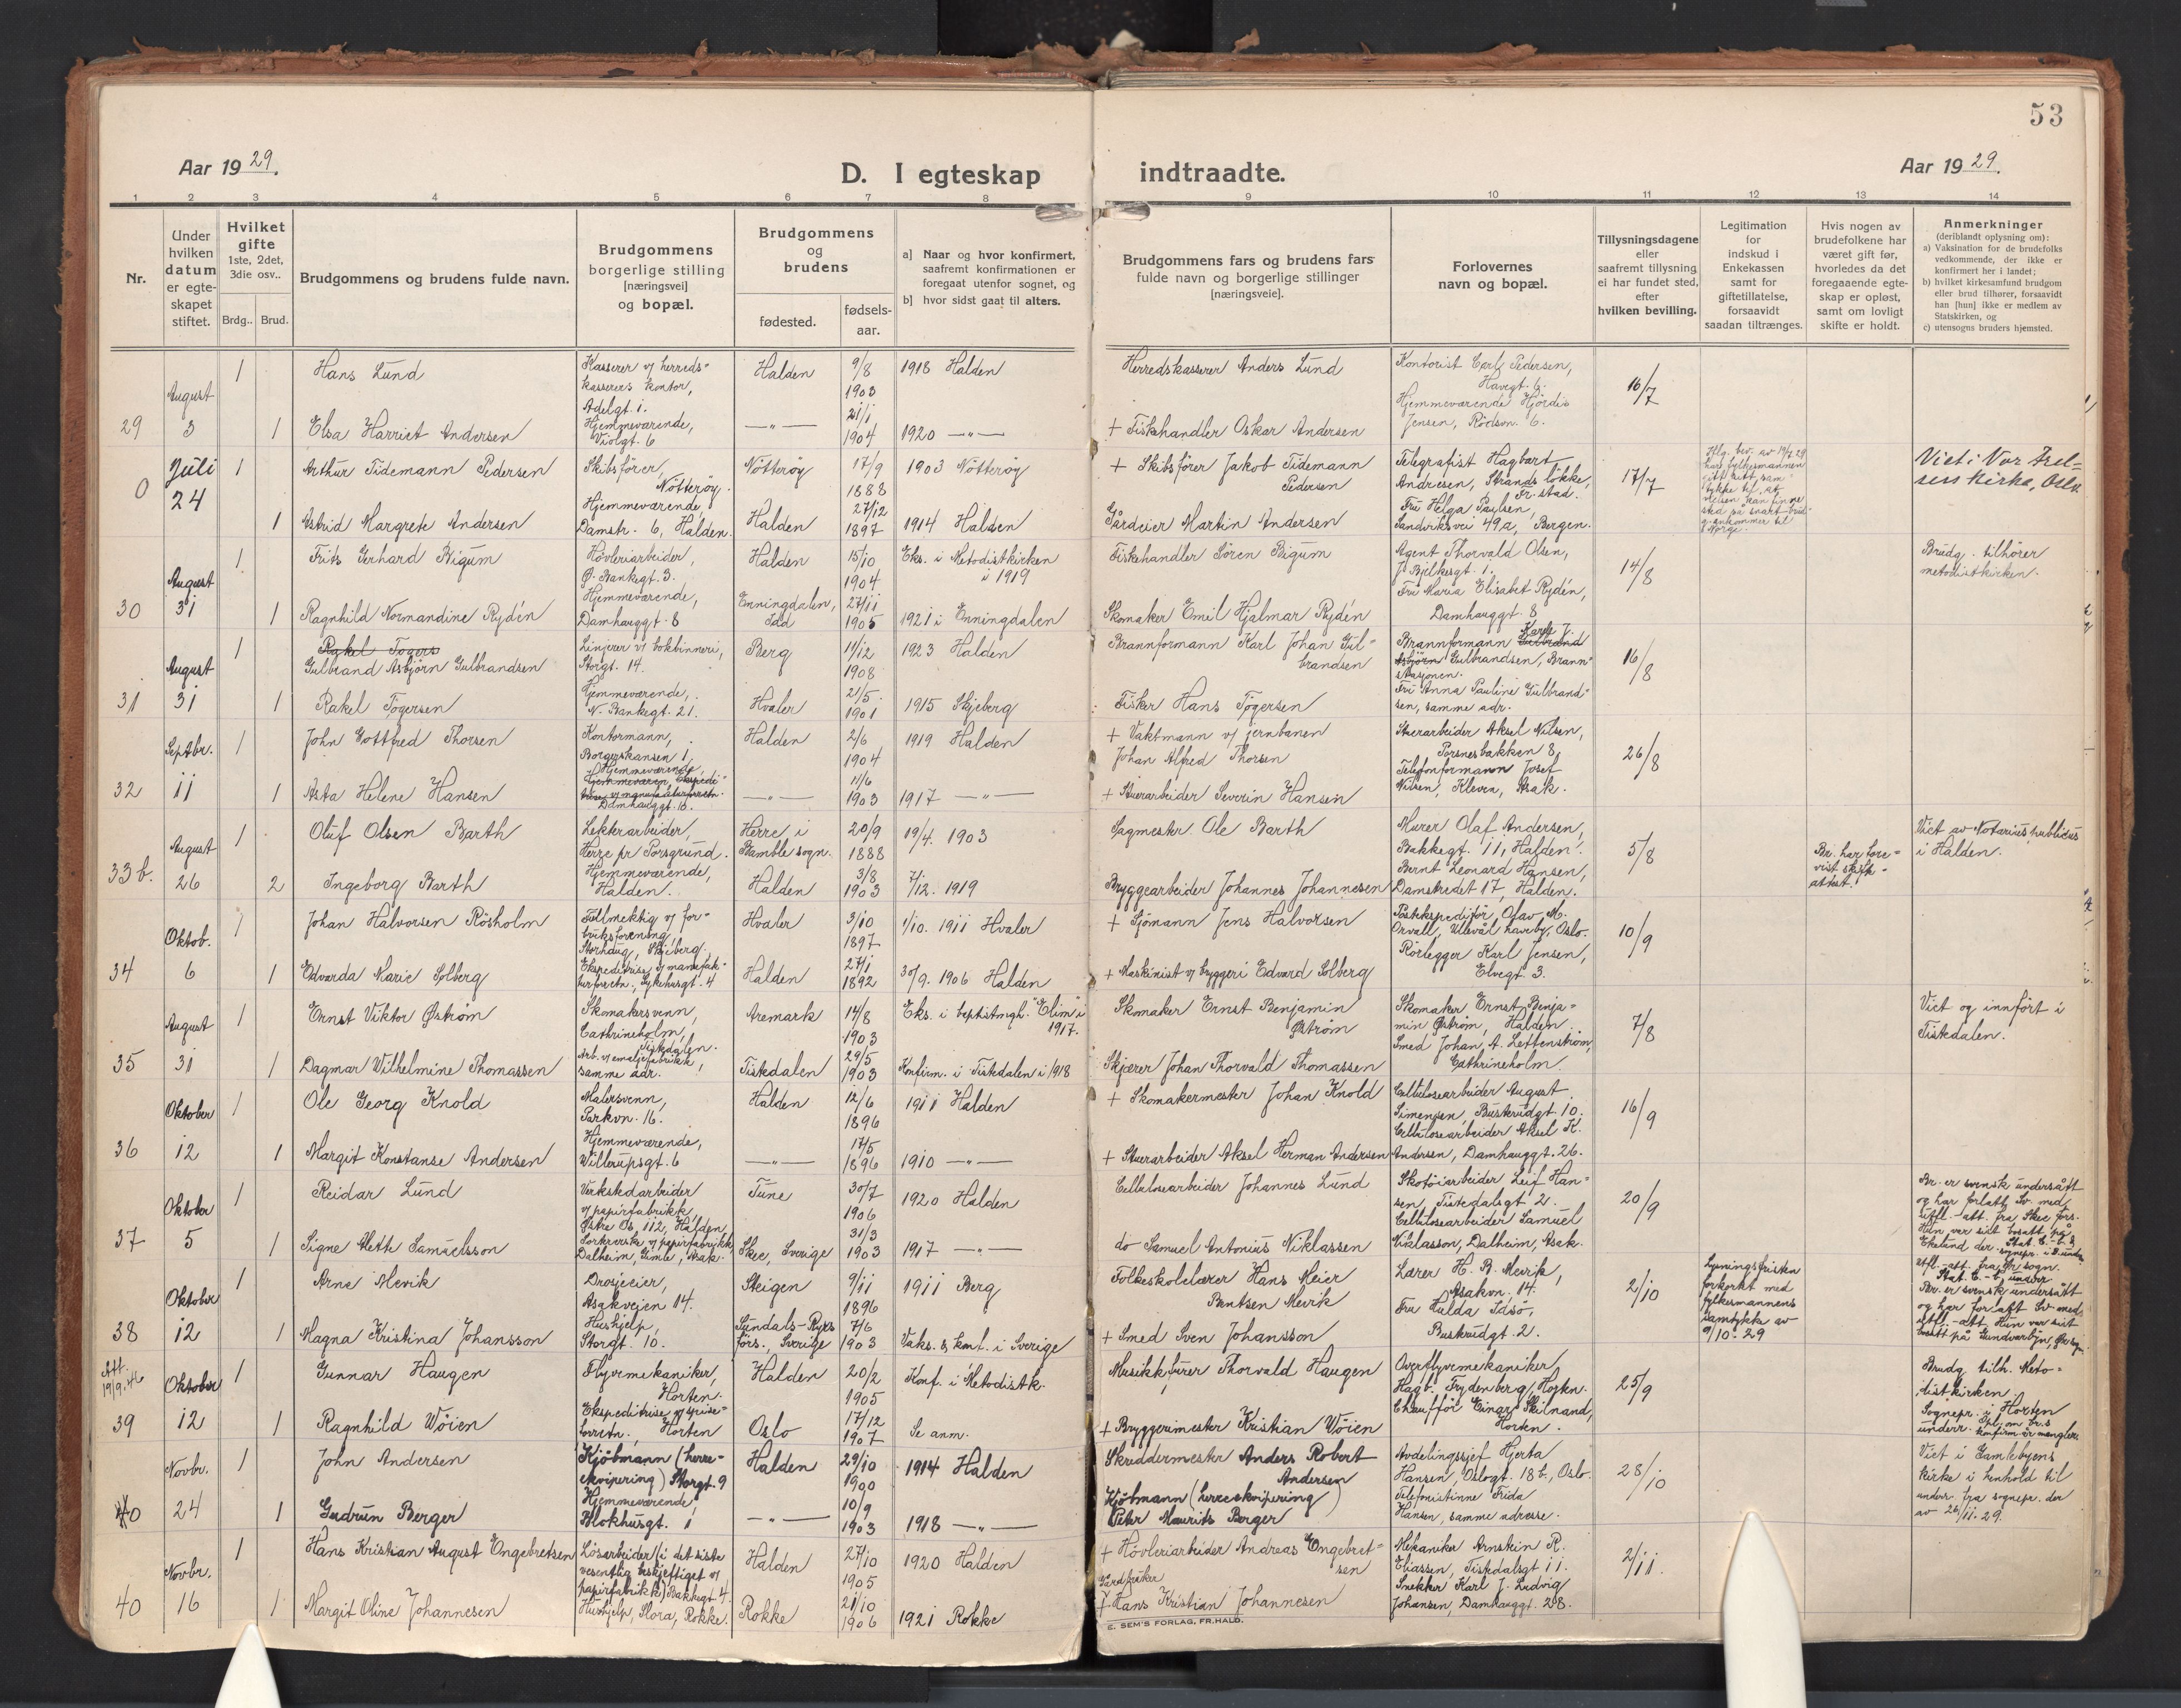 53
Aar 1929.
D. I egteskap indtraadte.
Aar 1929.
1 2 3 4 5 6 7 8 9 10 11 12 13 14
Nr.
Under hvilken datum er egte-skapet stiftet.
Hvilket gifte 1ste, 2det, 3die osv..
Brdg.. Brud.
Brudgommens og brudens fulde navn.
Brudgommens borgerlige stilling [næringsvei] og bopæl.
Brudgommens og brudens
fødested.
fødsels-aar.
a] Naar og hvor konfirmert, saafremt konfirmationen er foregaat utenfor sognet, og
b] hvor sidst gaat til alters.
Brudgommens fars og brudens fars fulde navn og borgerlige stillinger [næringsveie].
Forlovernes navn og bopæl.
Tillysningsdagene eller saafremt tillysning ei har fundet sted, efter hvilken bevilling.
Legitimation for indskud i Enkekassen samt for giftetillatelse, forsaavidt saadan tiltrænges.
Hvis nogen av brudefolkene har været gift før, hvorledes da det foregaaende egte-skap er opløst, samt om lovligt skifte er holdt.
Anmerkninger (deriblandt oplysning om):
a) Vaksination for de brudefolks vedkommende, der ikke er konfirmert her i landet;
b) hvilket kirkesamfund brudgom eller brud tilhører, forsaavidt han [hun] ikke er medlem av Statskirken, og
c) utensogns bruders hjemsted.
29 August 3
1 Hans Lund
Kasserer v/ herreds-kasserers kontor, Adelgt. 1.
Halden 9/8 1903 1918 Halden
Herredskasserer Anders Lund
Kontorist Carl Pedersen, Havegt. 6.
16/7
1 Elsa Harriet Andersen
Hjemmeværende, Violgt. 6
—"— 21/1 1904 1920 —"—
+ Fiskehandler Oskar Andersen
Hjemmeværende Hjördis Jensen, Rödsvn. 6.
0 Juli 24
1 Arthur Tidemann Pedersen
Skibsförer, Nötteröy.
Nötteröy 17/9 1888 1903 Nötteröy
+ Skibsförer Jakob Tidemann Pedersen
Telegrafist Hagbart Andresen, Strands løkke, Fr.stad.
17/7
Viet i Vor Frel-sers Kirke, Oslo.
1 Astrid Margrete Andersen
Hjemmeværende, Damstr. 6, Halden.
Halden 27/12 1897 1914 Halden
Gårdeier Martin Andersen
Fru Helga Paulsen, Sandviksvei 49a, Bergen.
30 August 31
1 Frits Gerhard Bigum
Høvleriarbeider, Ø. Bankegt. 3.
Halden 15/10 1904 Eks. i Metodistkirken i 1919
Fiskehandler Sören Bigum
Agent Thorvald Olsen, J. Bjelkesgt. 1.
14/8
Brudg. tilhører metodistkirken.
1 Ragnhild Normandine Rydén
Hjemmeværende, Damhauggt. 8
Enningdalen, Idd 27/11 1905 1921 i Enningdalen
Skomaker Emil Hjalmar Rydén
Fru Maria Elisabet Rydén, Damhauggt. 8
31 August 31
Rakel Togers
1 Gulbrand Asbjörn Gulbrandsen
Linjerer v/ bokbinneri, Storgt. 14.
Berg 11/12 1908 1923 Halden
Brannformann Karl Johan Gul-brandsen
Brannformann Gulbrand Asbjörn Karl J. Gulbrandsen, Brann-stasjonen.
16/8
1 Rakel Togersen
Hjemmeværende, N. Bankegt. 21.
Hvaler 21/5 1901 1915 Skjeberg
Fisker Hans Togersen
Fru Anna Pauline Gulbrand-sen, samme adr.
32 Septbr. 11
1 John Gottfred Thorsen
Kontormann, Borgerskansen 1.
Halden 2/6 1904 1919 Halden
+ Vaktmann v/ jernbanen Johan Alfred Thorsen
Stuerarbeider Aksel Nilsen, Porsnesbakken 8,
26/8
1 Asta Helene Hansen
Hjemmeværende, Damhauggt. 16.
—"— 11/6 1903 1917 —"—
+ Stuerarbeider Severin Hansen
Telefonformann Josef Nilsen, Kleven, Asak.
33 b. August 26
1 Oluf Olsen Barth
Lekterarbeider, Herre pr Porsgrund.
Herre i Bamble sogn. 20/9 1888 19/4. 1903
Sagmester Ole Barth
Murer Olaf Andersen, Bakkegt. 11, Halden.
5/8
Br. har fore-vist skifte-attest.
Viet av Notarius publicus i Halden.
2 Ingeborg Barth
Hjemmeværende, Halden.
Halden 3/8 1903 7/12. 1919
Bryggearbeider Johannes Johannesen
Bernt Leonard Hansen, Damstredet 17, Halden.
34 Oktob. 6
1 Johan Halvorsen Rösholm
Fullmektig v/ for-bruksforening, Storhaug, Skjeberg.
Hvaler 3/10 1897 1/10. 1911 Hvaler
+ Sjömann Jens Halvorsen
Postekspeditör Olav M. Orvall, Ullevål haveby, Oslo.
10/9
1 Edvarda Marie Solberg
Ekspeditrise v/ manufak-turforretn., Sykehusgt. 4
Halden 27/1 1892 30/9. 1906 Halden
+ Maskinist v/ bryggeri Edvard Solberg
Rörlegger Karl Jensen, Elvegt. 3.
35 August 31
1 Ernst Viktor Øström
Skomakersvenn, Cathrineholm, Tistedalen.
Aremark 14/8 1903 Eks. i baptistmgh. "Elim" i 1917.
Skomaker Ernst Benjamin Øström
Skomaker Ernst Benja-min Øström, Halden
7/8
Viet og innført i Tistedalen.
1 Dagmar Wilhelmine Thomassen
Arb. v/ emaljefabrikk, samme adr.
Tistedalen 29/5 1903 Konfirm. i Tistedalen i 1918
Skjærer Johan Thorvald Thomassen
Smed Johan A. Lettenström, Cathrineholm.
36 Oktober 12
1 Ole Georg Knold
Malersvenn, Parkvn. 16.
Halden 12/6 1896 1911 Halden
+ Skomakermester Johan Knold
Cellulosearbeider August Simensen, Buskrudgt. 10.
16/9
1 Margit Konstanse Andersen
Hjemmeværende, Willerupsgt. 6
—"— 17/5 1896 1910 —"—
+ Stuerarbeider Aksel Herman Andersen
Cellulosearbeider Aksel K. Andersen, Damhauggt. 26.
37 Oktober 5
1 Reidar Lund
Verkstedarbeider v/ papirfabrikk, Østre Os 112, Halden
Tune 30/7 1906 1920 Halden
Cellulosearbeider Johannes Lund
Skotöiarbeider Leif Han-sen, Tistedalsgt. 2.
20/9
Br. er svensk undersått og har forlatt Sv. med utfl.-att. fra Skee førs.
1 Signe Aleth Samuelsson
Sorkrerske v/ papirfabrikk, Dalheim, Gimle, Asak.
Skee, Sverige 31/3 1903 1917 —"—
do Samuel Antonius Niklassen
Cellulosearbeider Samuel Niklasson, Dalheim, Asak.
38 Oktober 12
1 Arne Mevik
Drosjeeier, Asakveien 14.
Steigen 9/11 1896 1911 Berg
Folkeskolelærer Hans Meier Bentsen Mevik
Lærer H. B. Mevik, Asakvn. 14.
2/10
Lysningsfristen forkortet med fylkesmannens samtykke av 9/10-29
Br. er svensk undersått og har forlatt Sv. med utfl.-att. Hun var sist bosatt på
1 Magna Kristina Johansson
Hushjelp, Storgt. 10.
Sundals-Ryrs førs., Sverige 7/6 1903 Vaks. & konf. i Sverige
+ Smed Sven Johansson
Fru Hulda Idsö, Buskrudgt. 2.
Att. 19/9.46
39 Oktober 12
1 Gunnar Haugen
Flyvemekaniker, Horten.
Halden 20/2 1905 Konf. i Metodistk.
Musikkfører Thorvald Haugen
Overflyvemekaniker Hagb. Frydenberg, Horten.
25/9
Brudg. tilh. Meto-distkirken.
1 Ragnhild Wöien
Ekspeditrise v/ Horten
Oslo 17/12 1907 Se anm.
+ Bryggerimester Kristian Wöien
Chauffför Einar Skilnand, Horten.
Sognepr. i Horten underr. konfirm. mangler
40 Novbr. 24
1 John Andersen
Kjöbmann (herre-ekvipering) Storgt. 9
Halden 29/10 1900 1914 Halden
Skreddermester Anders Robert Andersen
Avdelingssjef Hjerta Hansen, Oslogt. 18b, Oslo.
28/10
Viet i Gamlebyens kirke i henhold til underr. fra sognepr. der av 26/11. 29.
1 Gudrun Berger
Hjemmeværende, Blokhusgt. 1
—"— 10/9 1903 1918 —"—
Kjöbmann (herreekvipering) Peter Mauritz Berger
Telefonistinne Frida Hansen, samme adresse.
40 Novbr. 16
1 Hans Kristian August Engebretsen
Løsarbeider (i det siste vesentlig beskjeftiget v/ papirfabrikk) Bakkegt. 4.
Halden 27/10 1905 1920 Halden
+ Høvleriarbeider Andreas Engebret-sen
Mekaniker Arnstein R. Eliassen, Tistedalsgt. 11.
2/11.
1 Margit Oline Johannesen
Hushjelp, Slora, Rokke.
Rokke 21/10 1906 1921 Rokke
Gårdbruker + Hans Kristian Johannesen
Snekker Karl J. Ludvig Johansen, Damhauggt. 28.
E. SEM'S FORLAG, FR.HALD.